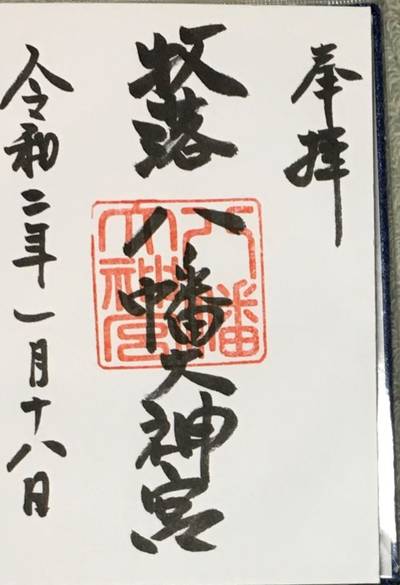 奉拝
牧落八幡大神宮
八幡
大神宮
令和二年一月十八日